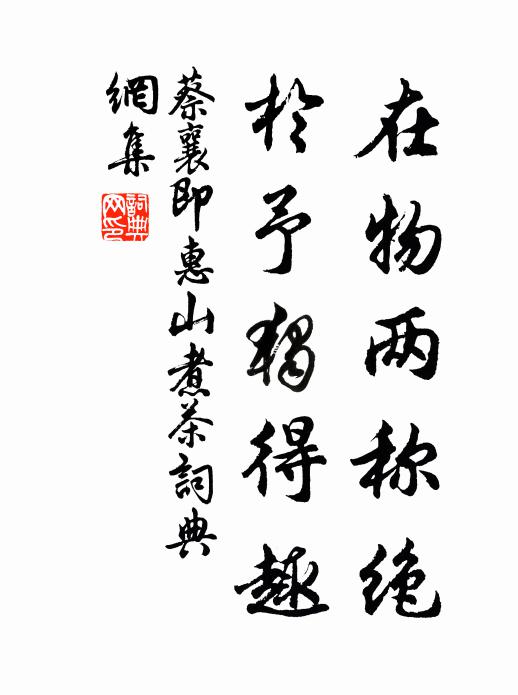 在物两称绝
於予獨得趣
蔡襄即惠山煮茶詞典
網集
詞典网印